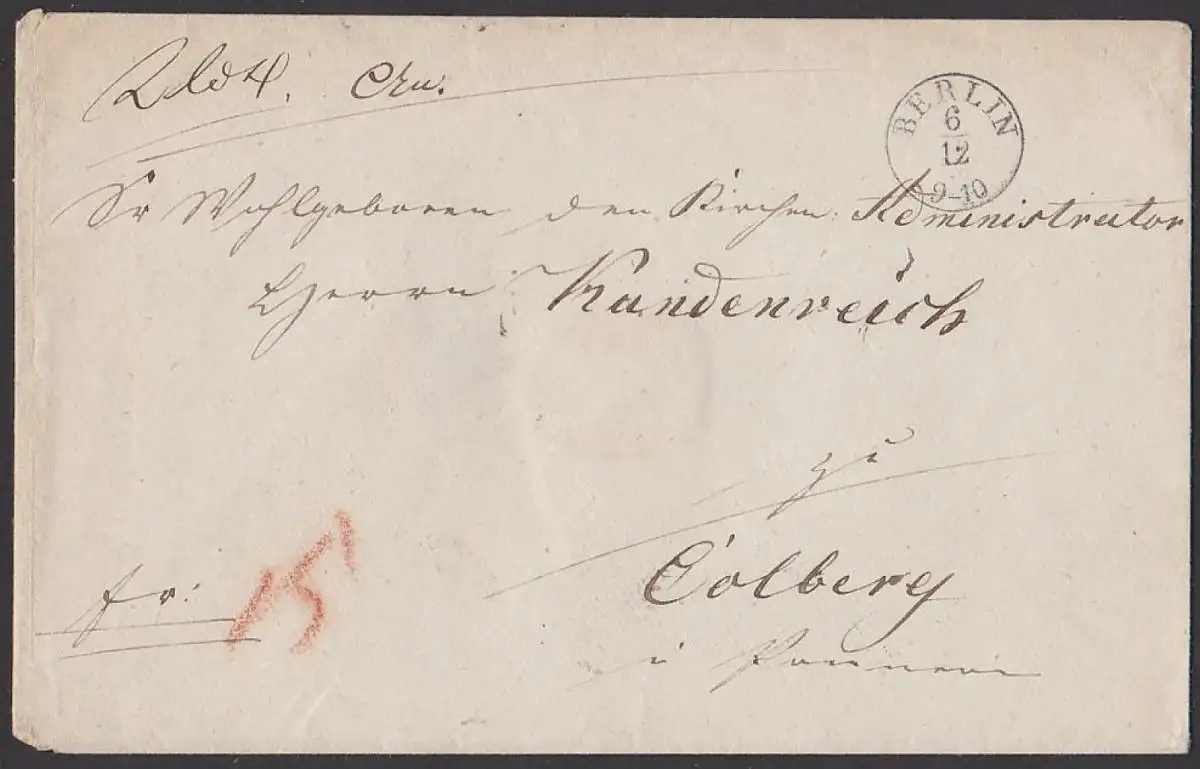 BERLIN
6
12
9-10
Sr Wohlgeboren den Kirchen Administrator
Herrn Kandenreich
zu
Colberg
i Pommern
fr:
15